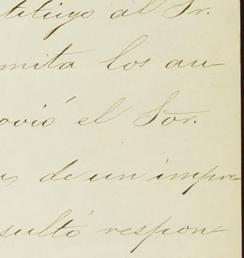 stituyo al Sr.
mita los au
ovió el Sor.
de un impre
sultó respon